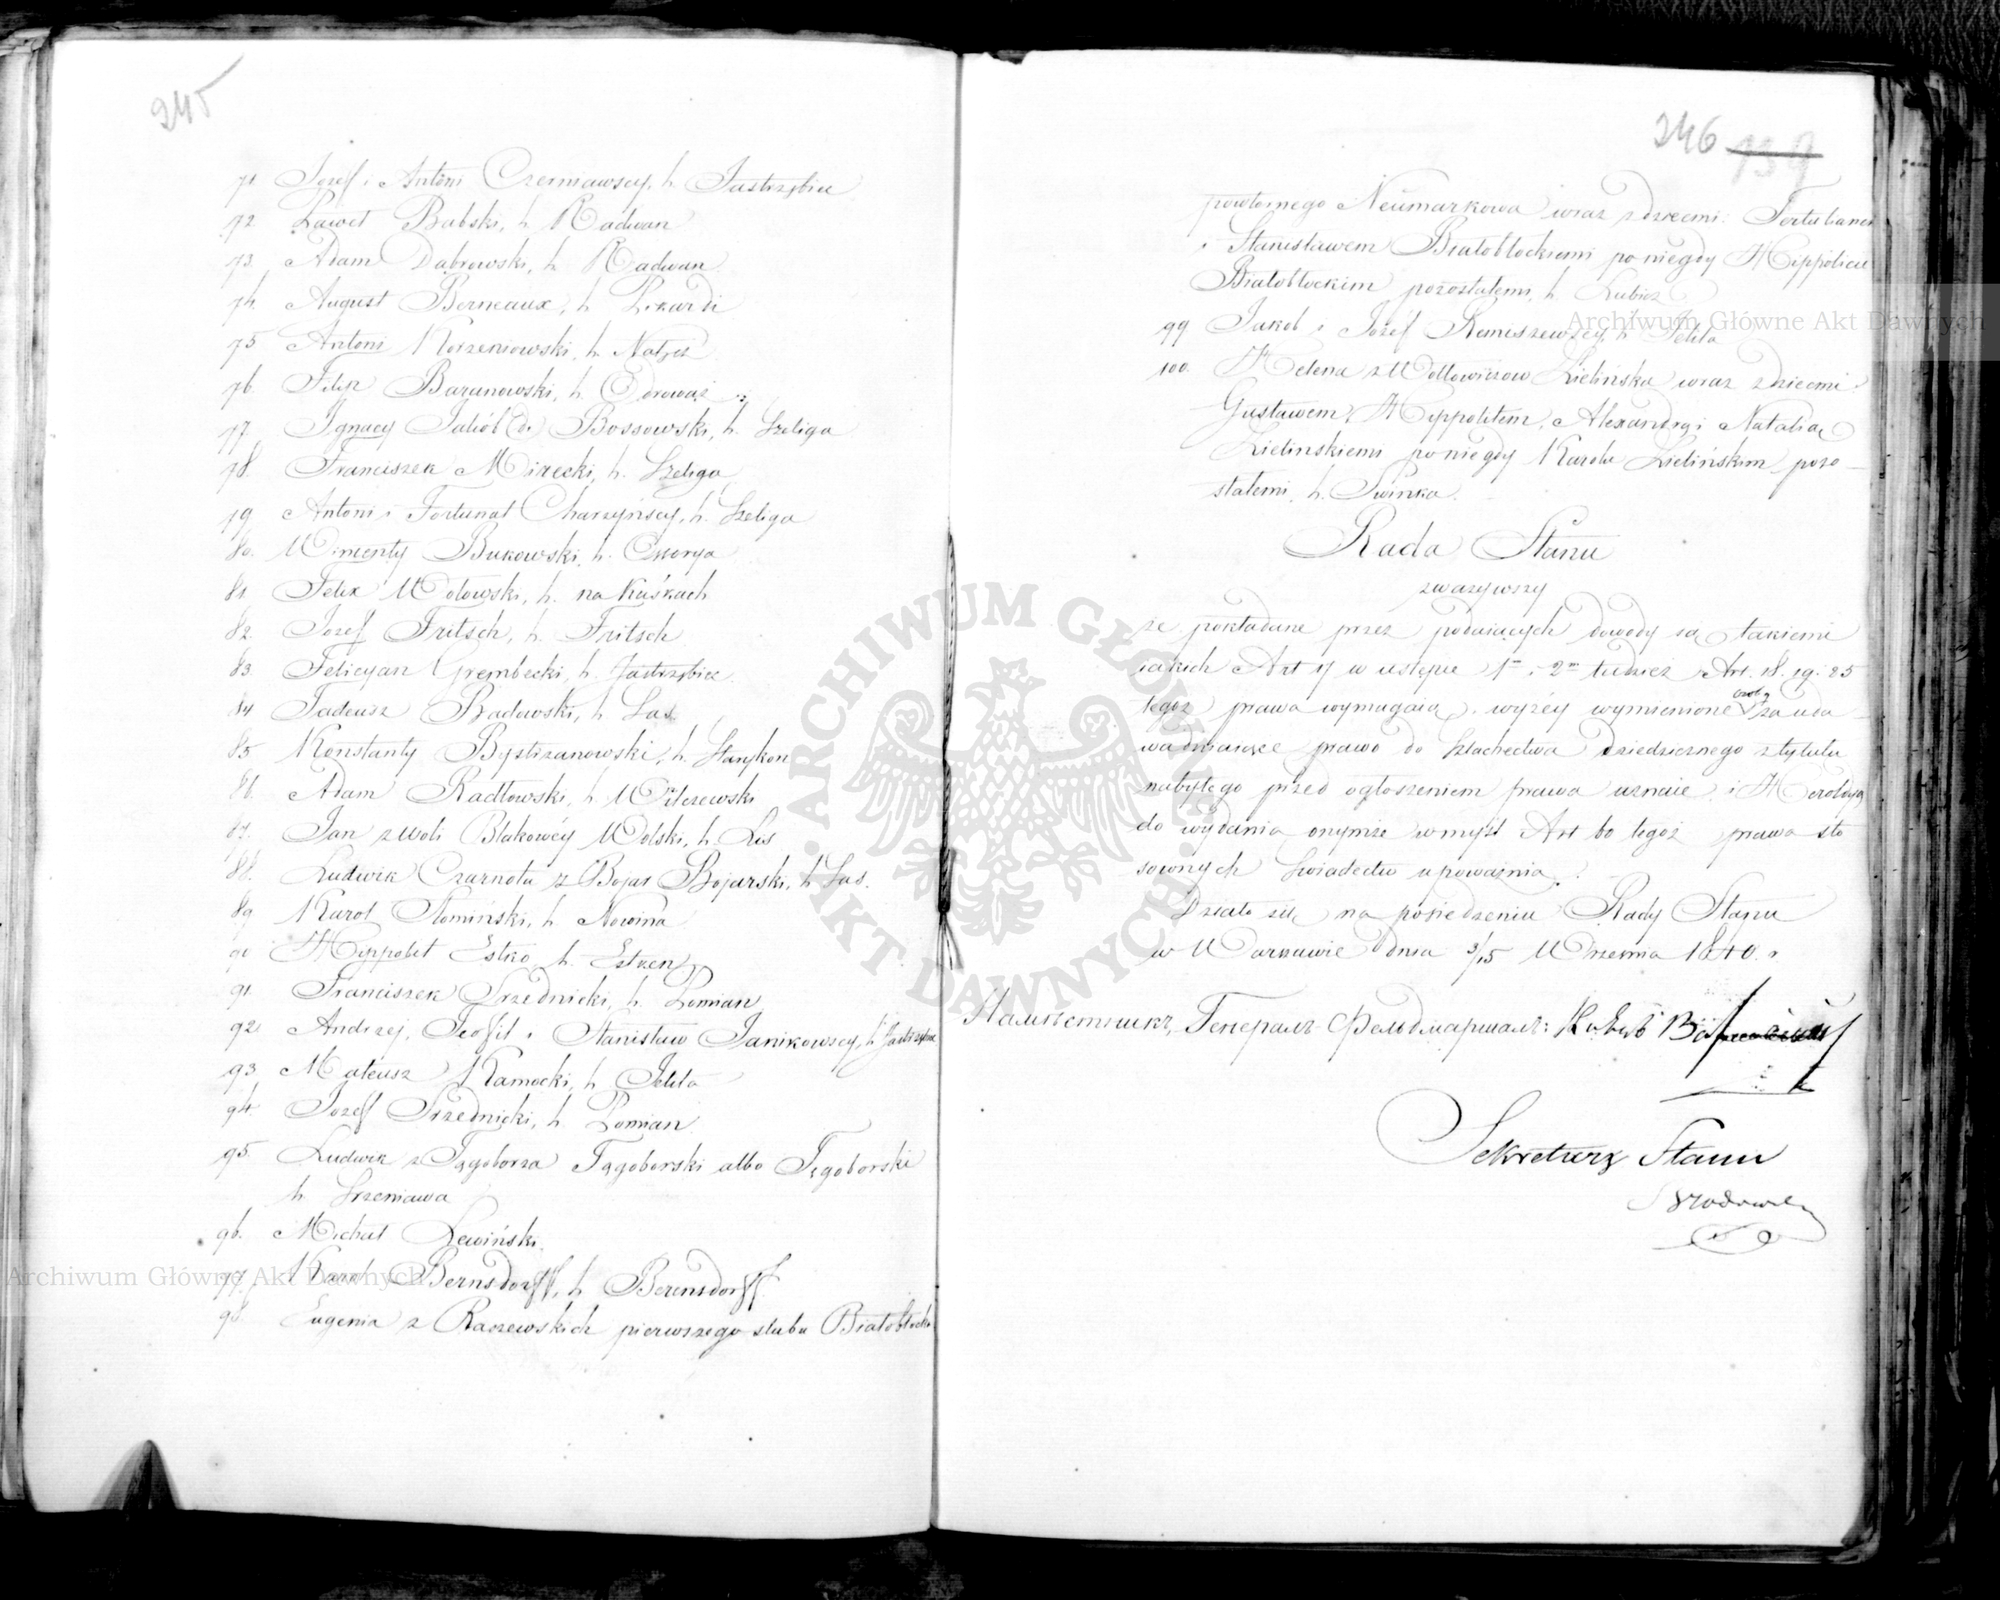 245
71 Józef i Antoni Czerniawscy, h. Jastrzębiec
72. Paweł Babski, h. Radwan
73. Adam Dąbrowski, h. Radwan
74. August Berneaux, h. Pikardi
75 Antoni Korzeniowski, h. Nałęcz
76. Filip Baranowski, h. Odrowąż
77. Ignacy Bossowski, h. Szeliga
78. Franciszek Mirecki, h. Szeliga
79. Antoni i Fortunat Charzyńscy, h. Szeliga
80. Bukowski, h. Ossorya
81. Felix Wolowski, h. na Kaskach
82. Józef Fritsch, h. Fritsch
83. Felicyan Grembecki, h. Jastrzębiec
84 Tadeusz Badowski, h. Sas
85 Konstanty Bystrzanowski, h. Starykon
86. Adam Radłowski, h.
87. Jan z Woli Blakowéy Wolski, h. Lis
88. Ludwik Czarnota z Bojar Bojarski, h. Sas.
89 Karol Słomiński, h. Nowina
90 Hippolit Estko, h. Estken
91. Franciszek Srzednicki, h. Pomian
92 Andrzej, Teofil i Stanisław Janikowscy, h. Jastrzębiec
93. Mateusz Kamocki, h. Jelita
94. Józef Srzednicki, h. Pomian
95. Ludwik z Tęgoborza Tęgoborski albo Tęgoborski
h. Szreniawa
96. Michał Lewiński.
97. Karol Bernsdorff, h. Berensdorff
98. Eugenia z Raszewskich pierwszego slubu Białobłocka
246 139
powtornego Neumarkowa wraz z dziećmi: Tertulianem
i Stanisławem Białobłockiemi po niegdy Hippolicie
Białobłockim pozostałemi, h. Lubicz
99. Jakob i Józef Remiszewscy, h. Jelita
100. Helena z Wołłowiczow Zielińska wraz z dziećmi
Gustawem, Hippolitem, Alexandrą i Natalią
Zielinskiemi po niegdy Karolu Zielińskim pozo-
stałemi, h. Swinka.
Rada Stanu
zważywszy
że pokładane przez podaiących dowody są takiemi
iakich Art 7 w ustępie 1m i 2m tudzież Art. 18. 19. i 25
tegoż prawa wymagaią, wyżéy wymienione osoby za uda
wadniaiące prawo do szlachectwa dziedzicznego z tytułu
nabytego przed ogłoszeniem prawa uznaie, i Heroldyą
do wydania onymże w myśl Art 60 tegoż prawa sto
sownych świadectw upoważnia.
Działo się na posiedzeniu Rady Stanu
w Warszawie dnia 3/15 Września 1840. r.
Намѣстникъ, Генералъ-Фельдмаршалъ: Князь Варшавскій
Sekretarz Stanu
Archiwum Główne Akt Dawnych
Archiwum Główne Akt Dawnych
ARCHIWUM GŁÓWNE
AKT DAWNYCH